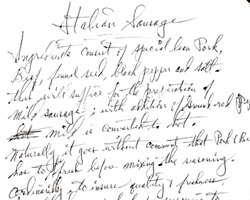 Italian Sausage
Ingredients consist of special lean Pork,
Beef, fennel seed, black pepper and salt.
This will suffice for the preparation of
Mild Sausage; with addition of Ground red
mild is converted to hot.
Naturally it goes without comment that Pork & Beef
has to fresh before mixing the seasoning.
to insure quality & freshness